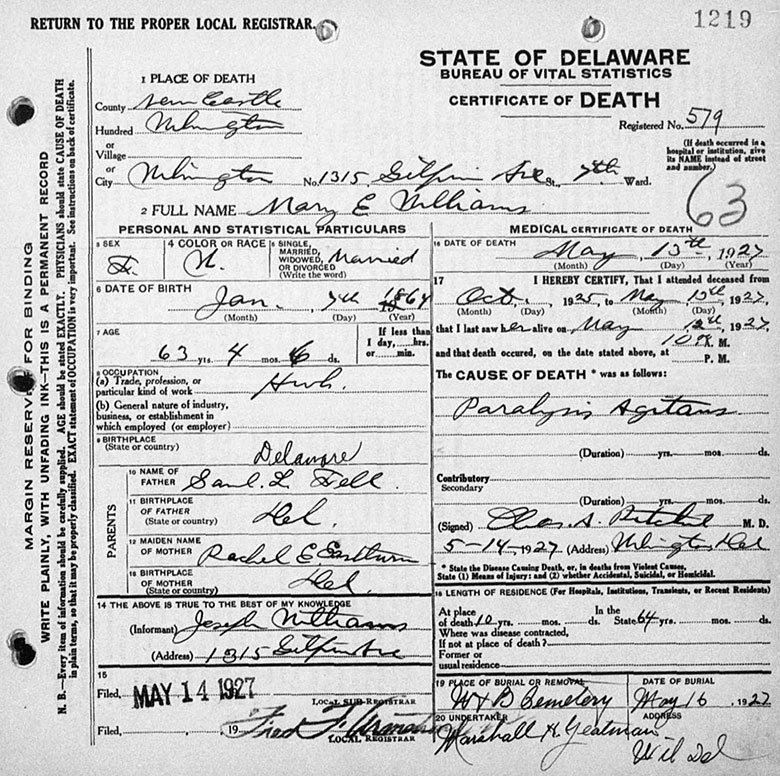 RETURN TO THE PROPER LOCAL REGISTRAR.
1219
STATE OF DELAWARE
BUREAU OF VITAL STATISTICS
CERTIFICATE OF DEATH
Registered No. 579
(If death occurred in a hospital or institution, give its NAME instead of street and number.)
63
1 PLACE OF DEATH
County New Castle
Hundred Wilmington
or
Village
or
City Wilmington No. 1315 Gilpin Ave St., 7th Ward.
2 FULL NAME Mary E Williams
PERSONAL AND STATISTICAL PARTICULARS
3 SEX F.
4 COLOR OR RACE W.
5 SINGLE, MARRIED, WIDOWED, OR DIVORCED (Write the word) Married
6 DATE OF BIRTH Jan. 7th 1864
(Month) (Day) (Year)
7 AGE
63 yrs. 4 mos. 6 ds.
If less than 1 day,....hrs. or......min.
8 OCCUPATION
(a) Trade, profession, or particular kind of work
(b) General nature of industry, business, or establishment in which employed (or employer)
9 BIRTHPLACE
(State or country) Delaware
PARENTS
10 NAME OF FATHER Saml. L. Dell
11 BIRTHPLACE OF FATHER
(State or country) Del.
12 MAIDEN NAME OF MOTHER Rachel E. Eastburn
13 BIRTHPLACE OF MOTHER
(State or country) Del.
14 THE ABOVE IS TRUE TO THE BEST OF MY KNOWLEDGE
(Informant) Joseph Williams
(Address) 1315 Gilpin Ave
15
Filed, MAY 14 1927
LOCAL SUB-REGISTRAR
Filed, 19 Fred
LOCAL REGISTRAR
MEDICAL CERTIFICATE OF DEATH
16 DATE OF DEATH May 13th, 1927
(Month) (Day) (Year)
17 I HEREBY CERTIFY, That I attended deceased from
Oct., 1925 to May 13th, 1927,
that I last saw her alive on May 12th, 1927
and that death occurred, on the date stated above, at 10 A. M.
P. M.
The CAUSE OF DEATH * was as follows:
Paralysis Agitans
(Duration) yrs. mos. ds.
Contributory
Secondary
(Duration) yrs. mos. ds.
(Signed) Chas. A. M. D.
5-14, 1927 (Address) Wilmington Del
* State the Disease Causing Death, or, in deaths from Violent Causes, State (1) Means of Injury: and (2) whether Accidental, Suicidal, or Homicidal.
18 LENGTH OF RESIDENCE (For Hospitals, Institutions, Transients, or Recent Residents)
At place of death 10 yrs. mos. ds. In the State 64 yrs. mos. ds.
Where was disease contracted,
If not at place of death?
Former or
usual residence
19 PLACE OF BURIAL OR REMOVAL
W & B Cemetery
DATE OF BURIAL
May 16, 1927
20 UNDERTAKER
Marshall H. Yeatman
ADDRESS
Wil Del
MARGIN RESERVED FOR BINDING
WRITE PLAINLY, WITH UNFADING INK—THIS IS A PERMANENT RECORD
N. B.—Every item of information should be carefully supplied. AGE should be stated EXACTLY. PHYSICIANS should state CAUSE OF DEATH
in plain terms, so that it may be properly classified. EXACT statement of OCCUPATION is very important. See instructions on back of certificate.